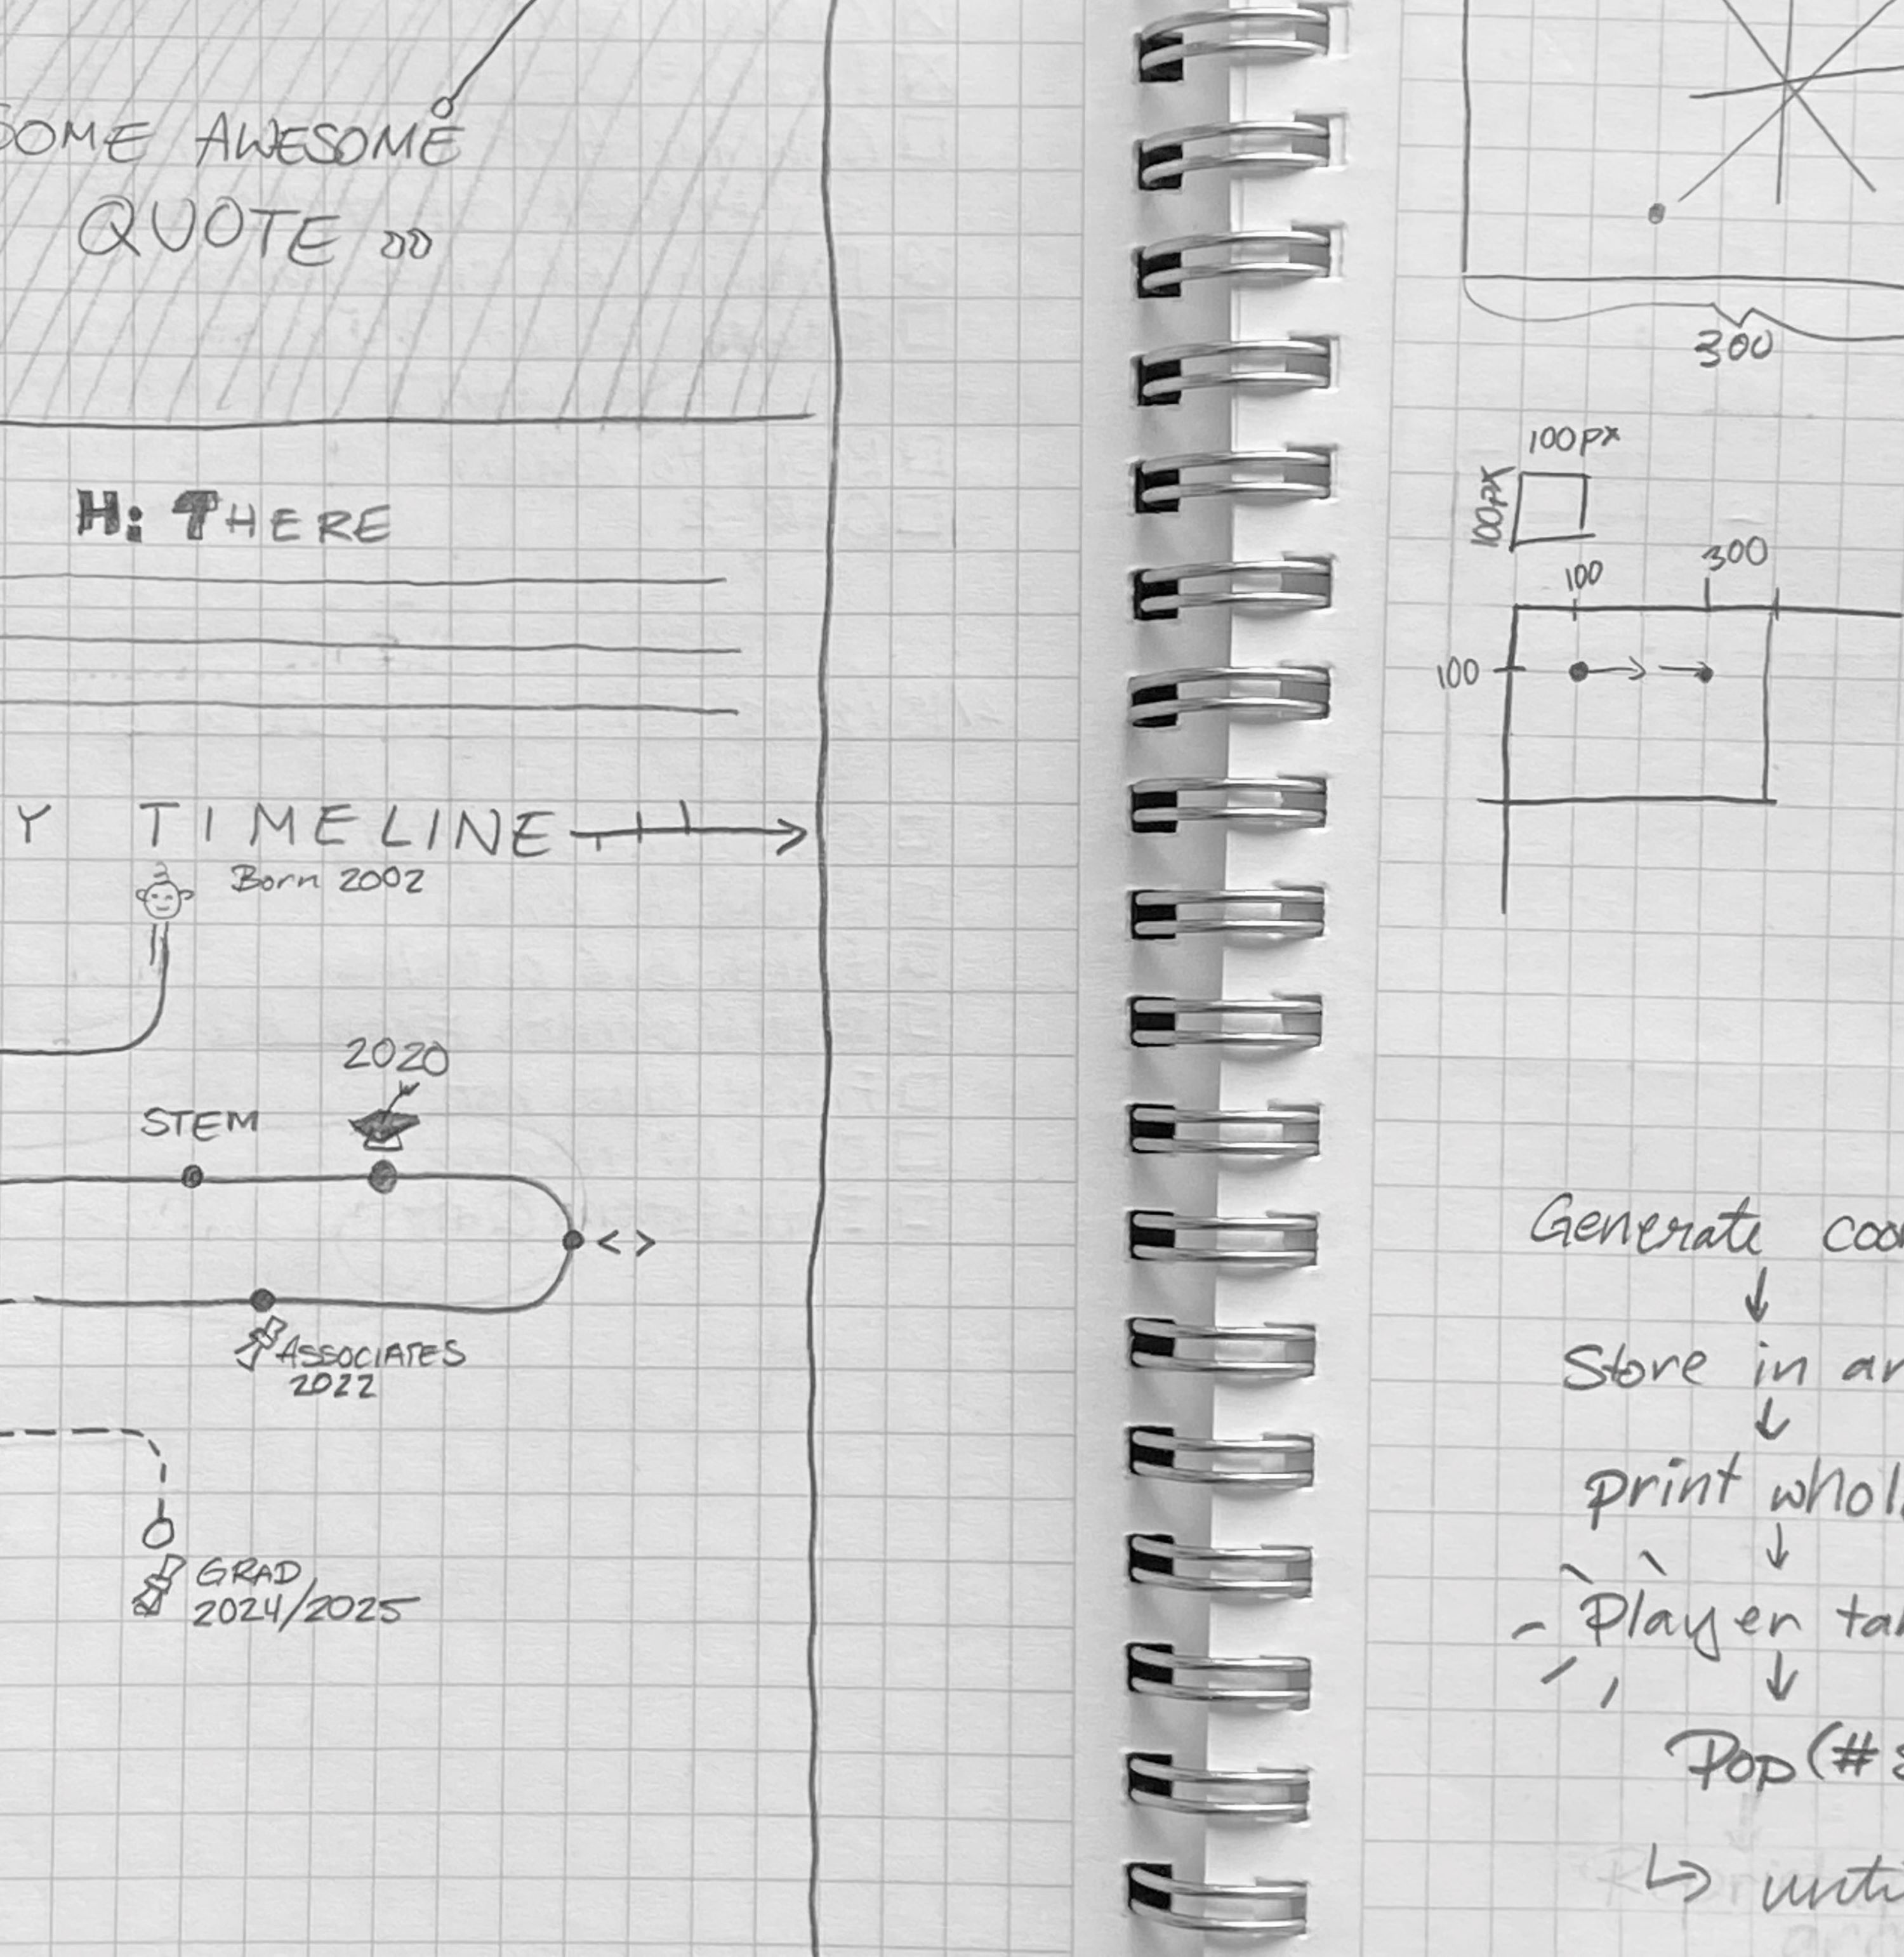 SOME AWESOME
QUOTE
Hi THERE
Y TIMELINE
Born 2002
2020
STEM
< >
ASSOCIATES
2022
GRAD
2024/2025
300
100px
100px
100
300
100
Generate coo
Store in ar
print whol
Player ta
Pop(#
↳ unti